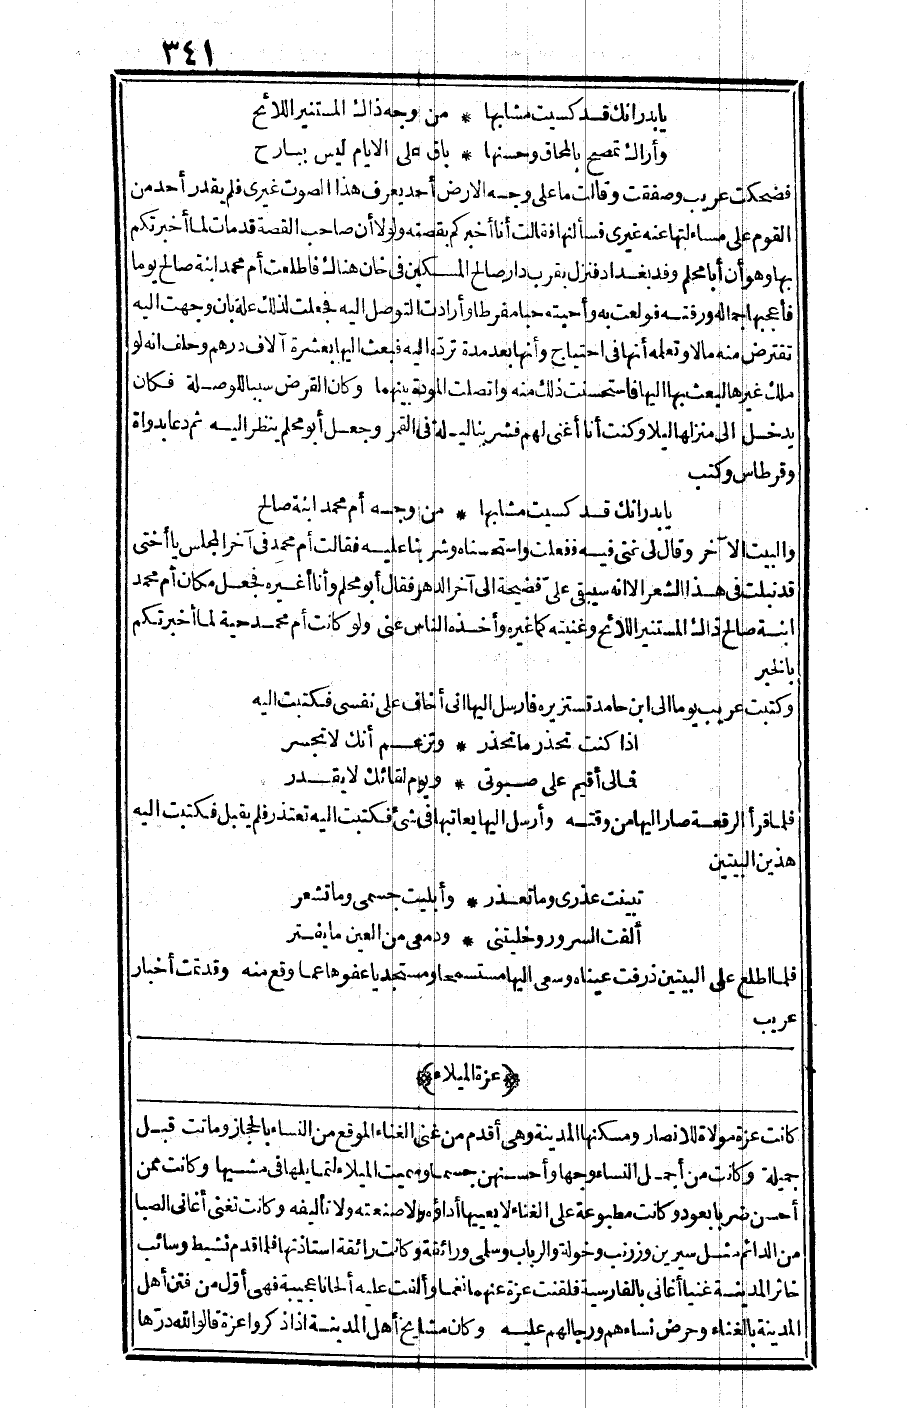 ٣٤١
يابدر انك قد كسيت مشابها * من وجه ذاك المستنير اللائح
وأراك تمصح بالمحاق وحسنها * باق على الايام ليس ببارح
فضحكت عريب وصفقت وقالت ما على وجه الارض أحد يعرف هذا الصوت غيرى فلم يقدر أحد من
القوم على مساءلتها عنه غيرى فسألتها فقالت أنا أخبركم بقصته ولولا أن صاحب القصة قد مات لما أخبرتكم
بها وهو أن أبا محلم وفد بغداد فنزل بقرب دار صالح المسكين فى خان هناك فاطلعت أم محمد ابنة صالح يوما
فأعجبها جماله ورقته فولعت به وأحبته حبا مفرطا وأرادت التوصل اليه فجعلت لذلك علة بان وجهت اليه
تقترض منه مالا وتعلمه أنها فى احتياج وأنها بعد مدة تردّه اليه فبعث اليها بعشرة آلاف درهم وحلف انه لو
ملك غيرها لبعث بها اليها فاستحسنت ذلك منه واتصلت المودة بينهما وكان القرض سببا للوصلة فكان
يدخل الى منزلها ليلا وكنت أنا أغنى لهم فشربنا ليلة فى القمر وجعل أبو محلم ينظر اليه ثم دعا بدواة
وقرطاس وكتب
يابدر انك قد كسيت مشابها * من وجه أم محمد ابنة صالح
والبيت الآخر وقال لى غنى فيه ففعلت واستحسناه وشربنا عليه فقالت أم محمد فى آخر المجلس يا أختى
قد نبلت فى هذا الشعر الا انه سيبقى علىّ فضيحة الى آخر الدهر فقال أبو محلم وأنا أغيره فجعل مكان أم محمد
ابنة صالح ذاك المستنير اللائح وغنيته كما غيره وأخذه الناس عنى ولو كانت أم محمد حية لما أخبرتكم
بالخبر
وكتبت عريب يوما الى ابن حامد تستزيره فارسل اليها انى أخاف على نفسى فكتبت اليه
اذا كنت تحذر ما تحذر * وتزعم أنك لا تجسر
فمالى أقيم على صبوتى * ويوم لقائك لا يقدر
فلما قرأ الرقعة صار اليها من وقته وأرسل اليها يعاتبها فى شئ فكتبت اليه تعتذر فلم يقبل فكتبت اليه
هذين البيتين
تبينت عذرى وما تعذر * وأبليت جسمى وما تشعر
ألفت السرور وخليتنى * ودمعى من العين ما يفتر
فلما اطلع على البيتين ذرفت عيناه وسعى اليها مستسمحا ومستجديا عفوها عما وقع منه وقد تمت أخبار
عريب
﴿عزة الميلاء﴾
كانت عزة مولاة للانصار ومسكنها المدينة وهى أقدم من غنى الغناء الموقع من النساء بالحجاز وماتت قبل
جميلة وكانت من أجمل النساء وجها وأحسنهن جسما وسميت الميلاء لتمايلها فى مشيها وكانت ممن
أحسن ضربا بعود وكانت مطبوعة على الغناء لا يعييها أداؤه ولا صنعته ولا تأليفه وكانت تغنى أغانى الصبا
من الدائم مثل سيرين وزرنب وخولة والرباب وسلمى ورائقة وكانت رائقة استاذتها فلما قدم نشيط وسائب
خاثر المدينة غنيا أغانى بالفارسية فلقنت عزة عنهما نغما وألفت عليه ألحانا عجيبة فهى أول من فتن أهل
المدينة بالغناء وحرض نساءهم ورجالهم عليه وكان مشايخ أهل المدينة اذا ذكروا عزة قالوا لله درّها